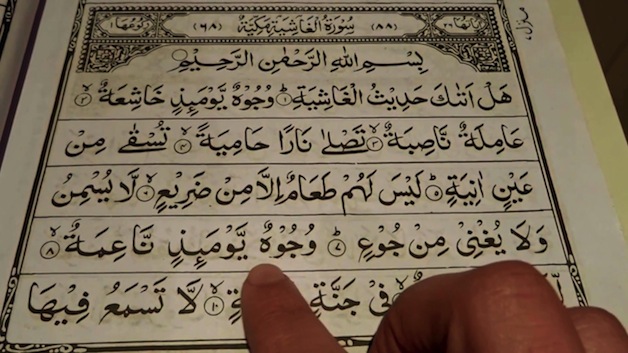 اٰيَاتُهَا ٢٦ (٨٨) سُوْرَةُ الْغَاشِيَةِ مَكِّيَّةٌ (٦٨) رُكُوْعُهَا ١
بِسْمِ اللّٰهِ الرَّحْمٰنِ الرَّحِيْمِ
هَلْ اَتٰىكَ حَدِيْثُ الْغَاشِيَةِ ١ وُجُوْهٌ يَّوْمَئِذٍ خَاشِعَةٌ ٢
عَامِلَةٌ نَّاصِبَةٌ ٣ تَصْلٰى نَارًا حَامِيَةً ٤ تُسْقٰى مِنْ
عَيْنٍ اٰنِيَةٍ ٥ لَيْسَ لَهُمْ طَعَامٌ اِلَّا مِنْ ضَرِيْعٍ ٦ لَّا يُسْمِنُ
وَلَا يُغْنِيْ مِنْ جُوْعٍ ٧ وُجُوْهٌ يَّوْمَئِذٍ نَّاعِمَةٌ ٨
فِيْ جَنَّةٍ ١٠ لَّا تَسْمَعُ فِيْهَا